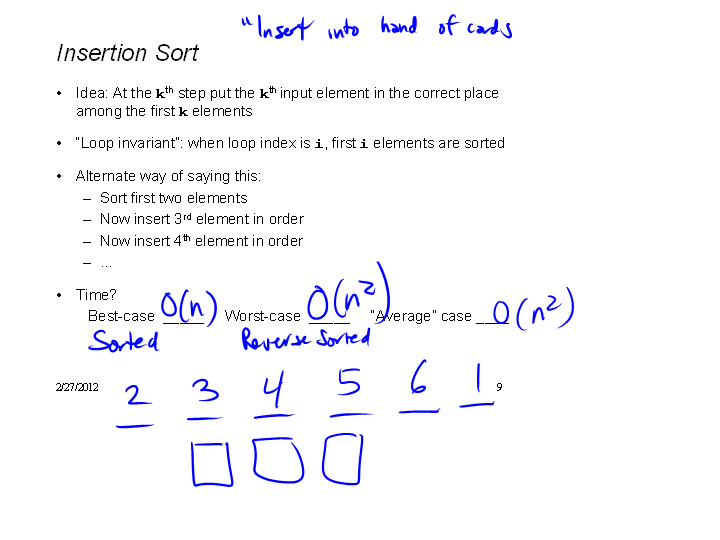 "Insert into hand of cards
Insertion Sort
• Idea: At the kth step put the kth input element in the correct place
among the first k elements
• "Loop invariant": when loop index is i, first i elements are sorted
• Alternate way of saying this:
– Sort first two elements
– Now insert 3rd element in order
– Now insert 4th element in order
– ...
• Time?
Best-case _____ O(n) Worst-case _____ O(n²) "Average" case ____ O(n²)
Sorted Reverse Sorted
2/27/2012 9
2 3 4 5 6 1